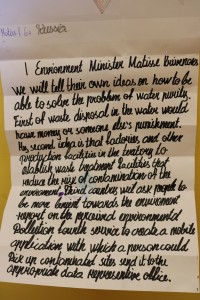 Russia
I Environment Minister Matisse
We will tell their own ideas on how to be
able to solve the problem of water purity.
First of waste disposal in the water would
have money or someone else's punishment.
My second idea is that factories and other
production facilities in the territory to
establish waste treatment facilities that
reduce the rays of contamination of the
environment. Third countries will ask people to
be more towards the environment
report on the perceived environmental
Pollution fourth service to create a mobile
application with which a person could
Pick up contaminated sites send it to the
appropriate data representative office.